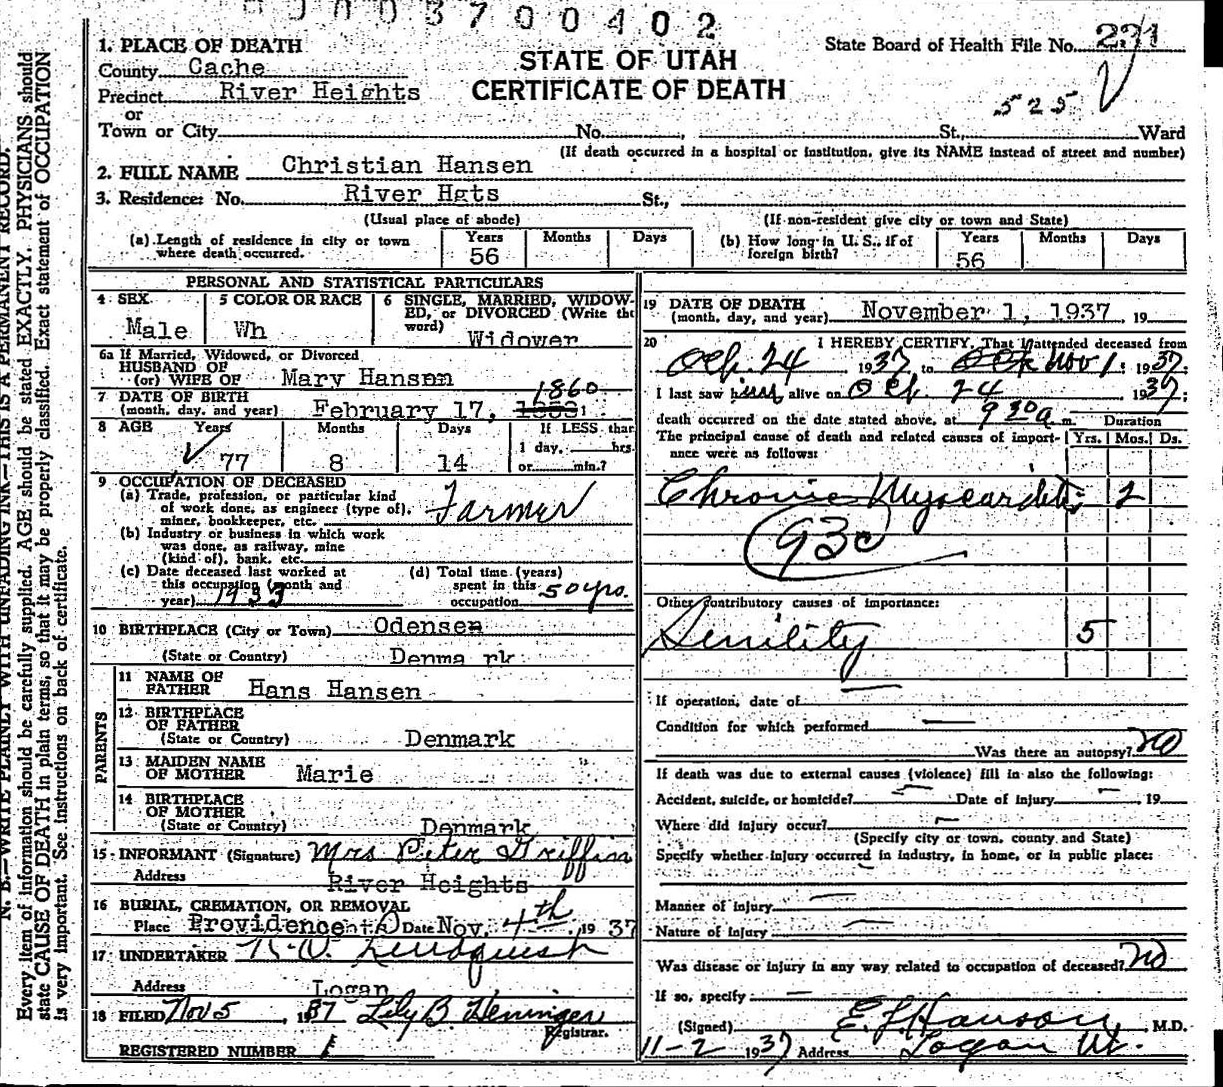 0003700402
1. PLACE OF DEATH
STATE OF UTAH
CERTIFICATE OF DEATH
State Board of Health File No. 271
County Cache
Precinct River Heights
or
525
Town or City No. St., Ward
(If death occurred in a hospital or institution, give its NAME instead of street and number)
2. FULL NAME Christian Hansen
3. Residence: No. River Hgts St.,
(Usual place of abode) (If non-resident give city or town and State)
(a) Length of residence in city or town where death occurred. Years 56 Months Days
(b) How long in U. S., if of foreign birth? Years 56 Months Days
PERSONAL AND STATISTICAL PARTICULARS
4 SEX Male
5 COLOR OR RACE Wh
6 SINGLE, MARRIED, WIDOWED, or DIVORCED (Write the word) Widower
6a If Married, Widowed, or Divorced
HUSBAND OF
(or) WIFE OF Mary Hansen
7 DATE OF BIRTH
(month, day, and year) February 17, 1860
8 AGE Years 77 Months 8 Days 14
If LESS than 1 day, hrs. or min.?
9 OCCUPATION OF DECEASED
(a) Trade, profession, or particular kind
of work done, as engineer (type of),
miner, bookkeeper, etc. Farmer
(b) Industry or business in which work
was done, as railway, mine
(kind of), bank, etc.
(c) Date deceased last worked at
this occupation (month and
year) 1933
(d) Total time (years)
spent in this
occupation 50 yrs.
10 BIRTHPLACE (City or Town) Odensen
(State or Country) Denmark
PARENTS
11 NAME OF
FATHER Hans Hansen
12 BIRTHPLACE
OF FATHER
(State or Country) Denmark
13 MAIDEN NAME
OF MOTHER Marie
14 BIRTHPLACE
OF MOTHER
(State or Country) Denmark
15 INFORMANT (Signature) Mrs Peter Griffin
Address River Heights
16 BURIAL, CREMATION, OR REMOVAL
Place Providence Date Nov. 4th, 1937
17 UNDERTAKER Lindquist
Address Logan
18 FILED Nov 5 1937 Lily B.
Registrar.
REGISTERED NUMBER 1
19 DATE OF DEATH
(month, day, and year) November 1, 1937 19
20 I HEREBY CERTIFY, That I attended deceased from
Oct. 24 1937 to Nov 1 1937;
I last saw him alive on Oct. 24 1937;
death occurred on the date stated above, at 9 30 a m. Duration
The principal cause of death and related causes of importance were as follows: Yrs. Mos. Ds.
Chronic Myocarditis 2
93c
Other contributory causes of importance:
Senility 5
If operation, date of
Condition for which performed
Was there an autopsy? no
If death was due to external causes (violence) fill in also the following:
Accident, suicide, or homicide? Date of injury 19
Where did injury occur?
(Specify city or town, county and State)
Specify whether injury occurred in industry, in home, or in public place:
Manner of injury
Nature of injury
Was disease or injury in any way related to occupation of deceased? no
If so, specify
(Signed) E. L. Hanson, M.D.
11-2 1937 Address Logan Ut.
N. B.—WRITE PLAINLY WITH UNFADING INK—THIS IS A PERMANENT RECORD.
Every item of information should be carefully supplied. AGE should be stated EXACTLY. PHYSICIANS should
state CAUSE OF DEATH in plain terms, so that it may be properly classified. Exact statement of OCCUPATION
is very important. See instructions on back of certificate.